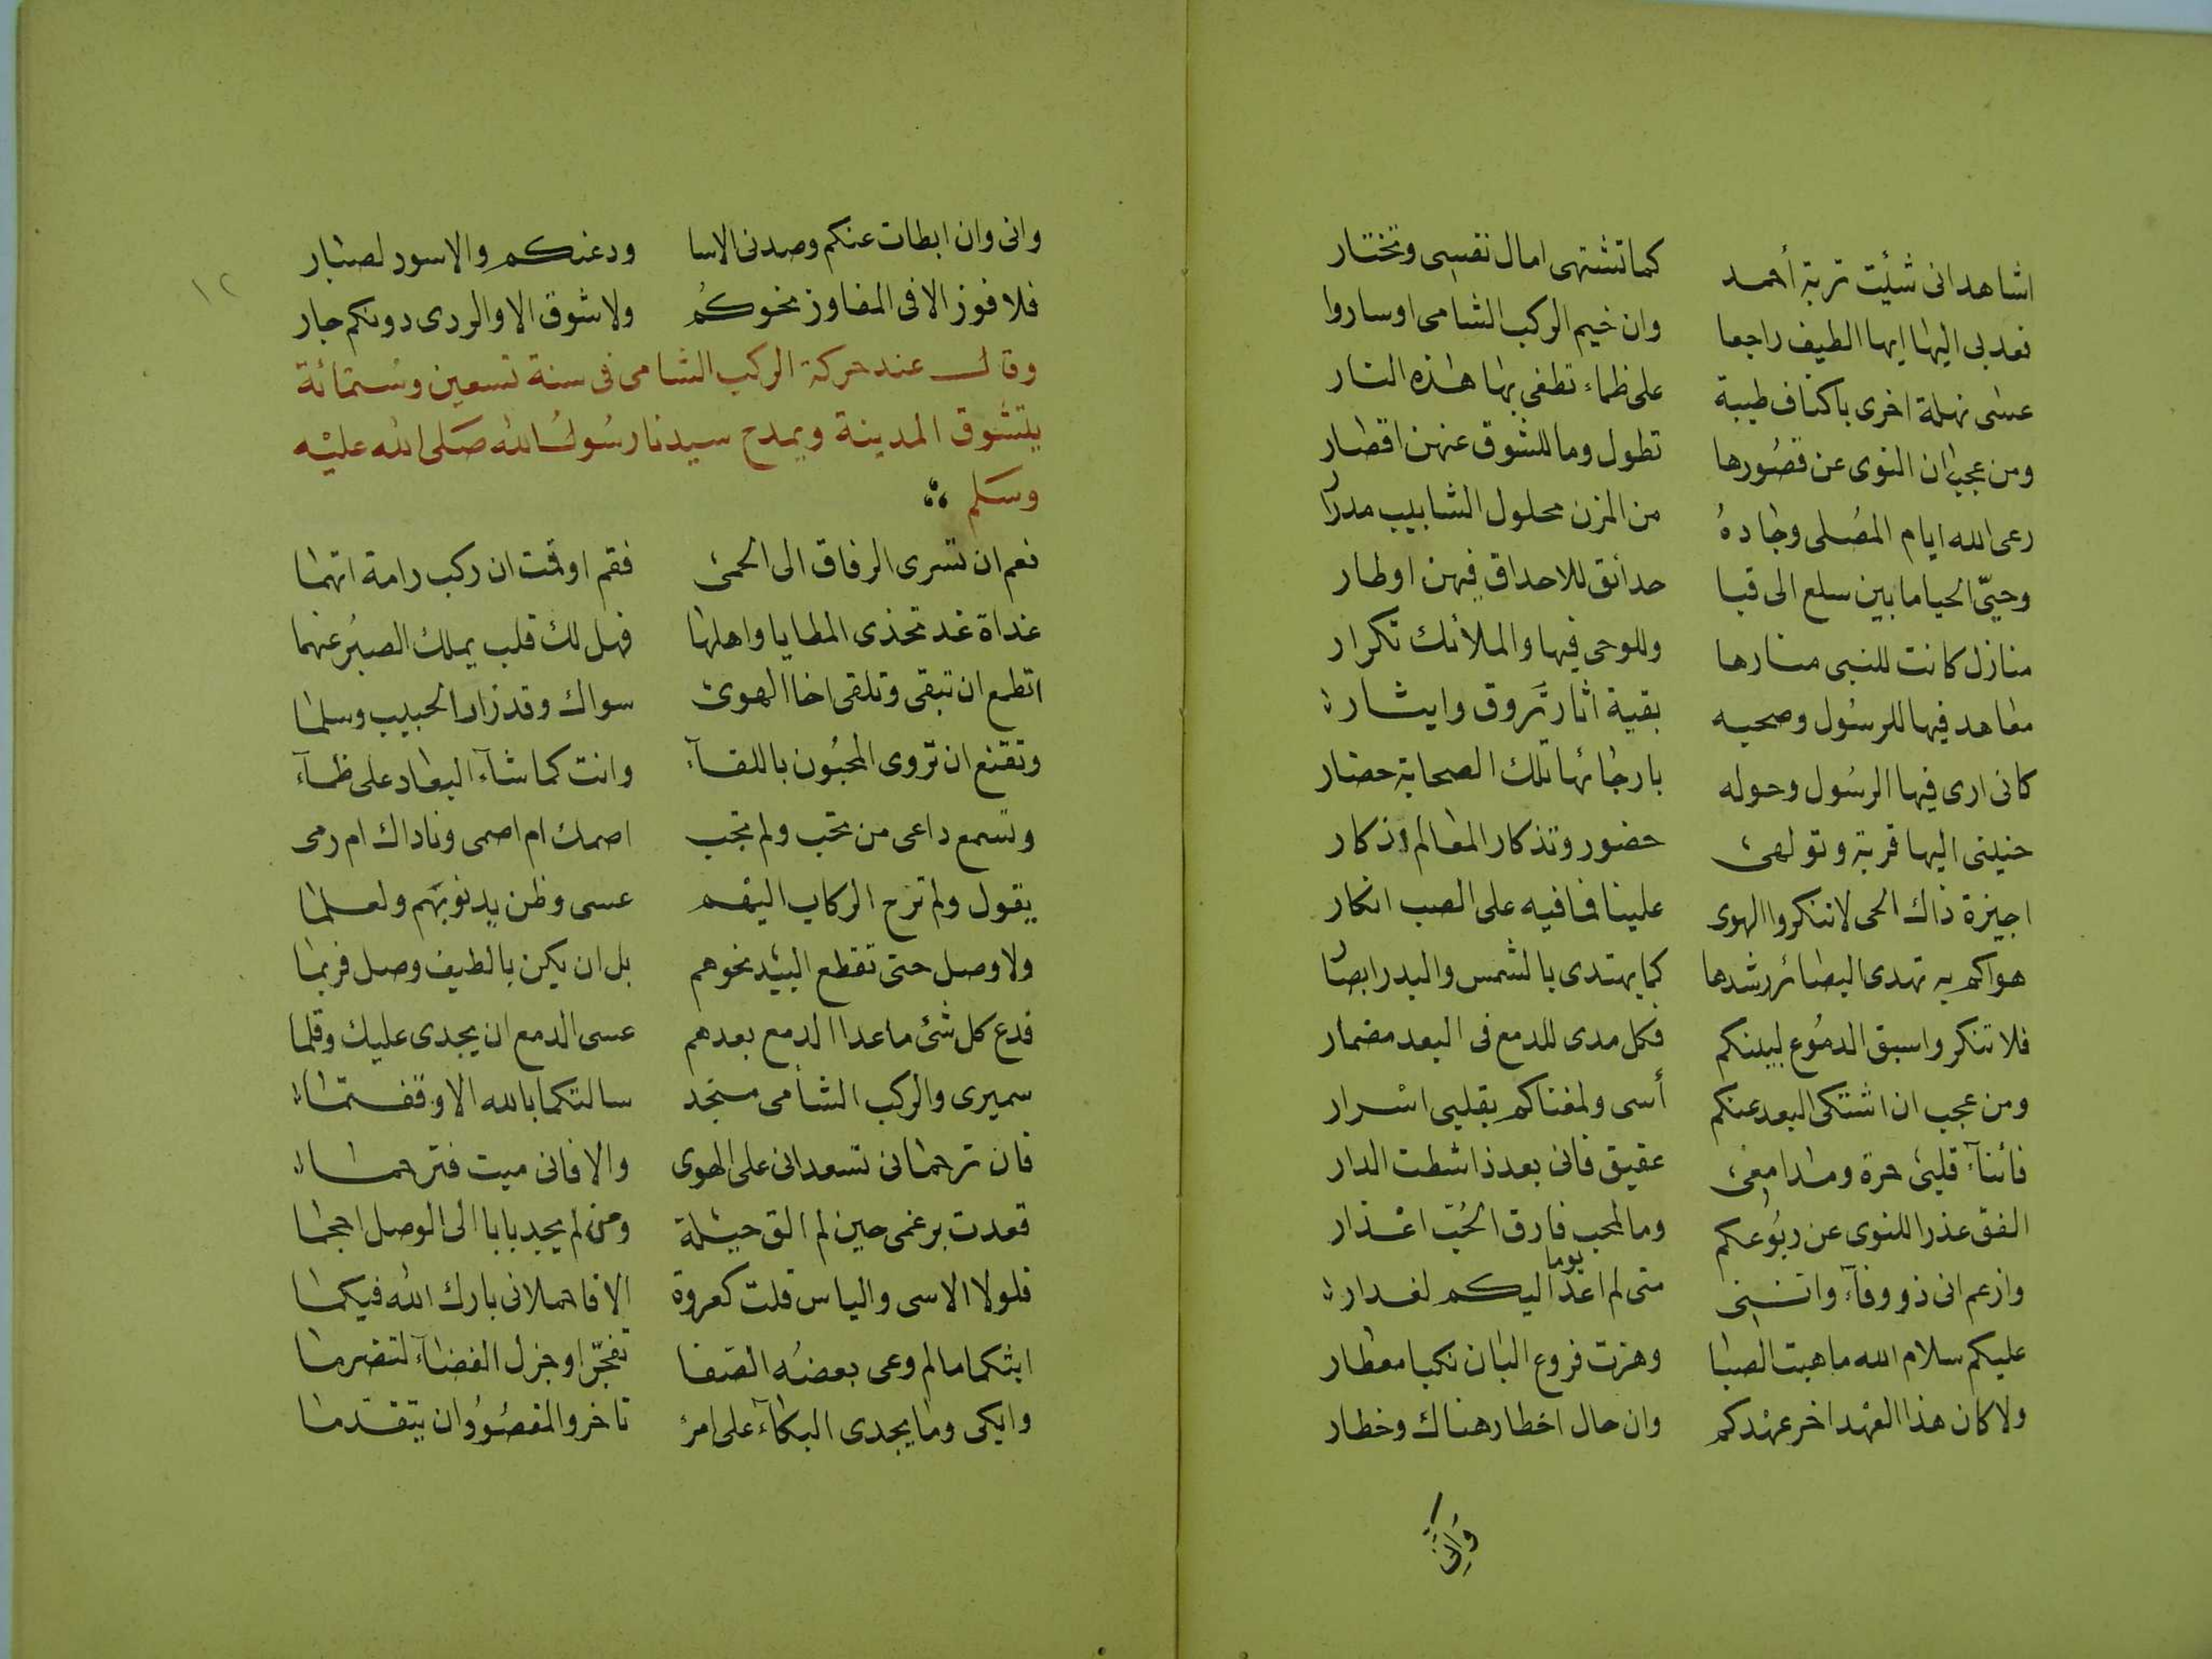 اشاهد انى شئت تربة أحمد كما تشتهى امال نفسى وتختار
فعد بى اليها ايها الطيف راجعا وان خيم الركب الشامى او ساروا
عسى نهلة اخرى باكناف طيبة على ظماء تطفى بها هذه النار
ومن عجب ان النوى عن قصورها تطول وما للشوق عنهن اقصار
رعى الله ايام المصلى وجاده من المزن محلول الشابيب مدرار
وحيّى الحيا ما بين سلع الى قبا حدائق للاحداق فيهن اوطار
منازل كانت للنبى منارها وللوحى فيها والملائك تكرار
معاهد فيها للرسول وصحبه بقية اثار تروق وايثار
كانى ارى فيها الرسول وحوله بارجائها تلك الصحابة حضار
حنينى اليها قربة وتولهى حضور وتذكار المعالم اذكار
اجيزة ذاك الحى لا تنكروا الهوى علينا فما فيه على الصب انكار
هواكم به تهدى البصائر رشدها كما يهتدى بالشمس والبدر ابصار
فلا تنكروا سبق الدموع لبينكم فكل مدى للدمع فى البعد مضمار
ومن عجب ان اشتكى البعد عنكم أسى ولمغناكم بقلبى اسرار
فائناآ قلبى حرة ومدامعى عقيق فانى بعد ذا شطت الدار
الفق عذرا للنوى عن ربوعكم وما لمحب فارق الحب اعذار
وازعم انى ذو وفآء واننى متى لم اعد يوما اليكم لغدار
عليكم سلام الله ما هبت الصبا وهزت فروع البان نكبا معطار
ولا كان هذا العهد اخر عهدكم وان حال اخطار هناك وخطار
وانى
١٢
وانى وان ابطات عنكم وصدنى الاسا ودعنكم والاسود لصبار
فلا فوز الا فى المفاوز نحوكم ولا شوق الا والردى دونكم جار
وقال عند حركة الركب الشامى فى سنة تسعين وستمائة
يتشوق المدينة ويمدح سيدنا رسول الله صلى الله عليه
وسلم
نعم ان تسرى الرفاق الى الحمى فقم او قمت ان ركب رامة اتهما
غداة غد تحذى المطايا واهلها فهل لك قلب يملك الصبر عنهما
اتطمع ان تبقى وتلقى اخا الهوى سواك وقد زار الحبيب وسلما
وتقنع ان تروى المحبون باللقآء وانت كما شآء البعاد على ظمآء
وتسمع داعى من تحب ولم تجب اصمك ام اصمى وناداك ام رمى
يقول ولم تزح الركاب اليهم عسى وظن يدنو بهم ولعلما
ولا وصل حتى تقطع البيد نحوهم بل ان يكن بالطيف وصل فربما
فدع كل شئ ما عدا الدمع بعدهم عسى الدمع ان يجدى عليك وقلما
سميرى والركب الشأمى منجد سالتكما بالله الا وقفتما
فان ترحمانى تسعدانى على الهوى والا فانى ميت فترحما
قعدت برغمى حين لم الق حيلة ومن لم يجد بابا الى الوصل احجما
فلولا الاسى والياس قلت كعروة الا فاحملانى بارك الله فيكما
ابثكما ما لم وعى بعضه الصفا تفجّر او جزل الغضآء لتضرما
وابكى وما يجدى البكآء على امرئ تاخر والمقصود ان يتقدما